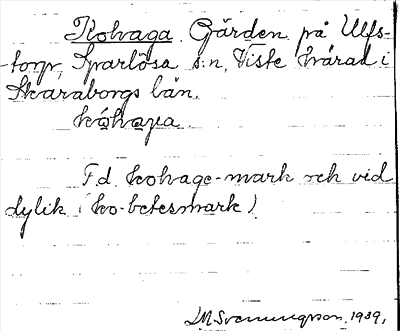 Kohaga. Gården på Ulfs-
torp, Sparlösa s:n, Viste härad i
Skaraborgs län.
kóhaga
F d. kohage-mark och vid
dylik (ko-betesmark).
LMSvenungsson, 1939,